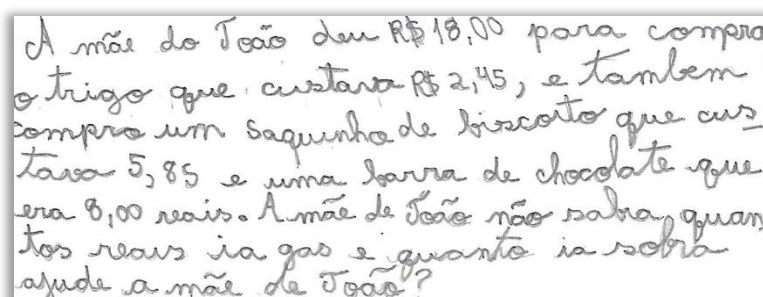 A mãe do João deu R$ 18,00 para compra
o trigo que custava R$ 2,45, e tambem
compro um saquinho de biscoito que cus
tava 5,85 e uma barra de chocolate que
era 8,00 reais. A mãe de João não sabia quan
tos reais ia gas e quanto ia sobra
ajude a mãe de João?